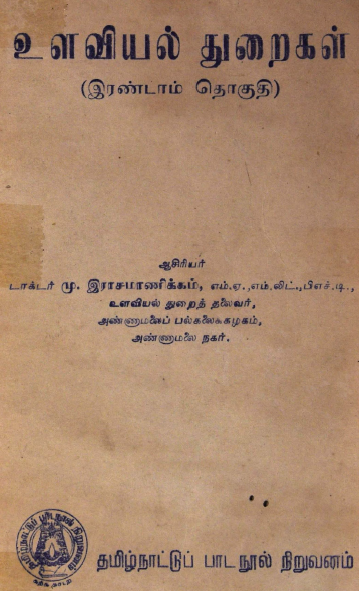 உளவியல் துறைகள்
(இரண்டாம் தொகுதி)
ஆசிரியர்
டாக்டர் மு. இராசமாணிக்கம், எம்.ஏ.,எம்.லிட்.,பிஎச்.டி.,
உளவியல் துறைத் தலைவர்,
அண்ணாமலைப் பல்கலைகழகம்,
அண்ணாமலை நகர்.
தமிழ்நாட்டுப் பாடநூல் நிறுவனம்
தமிழ்நாட்டுப் பாடநூல் நிறுவனம்